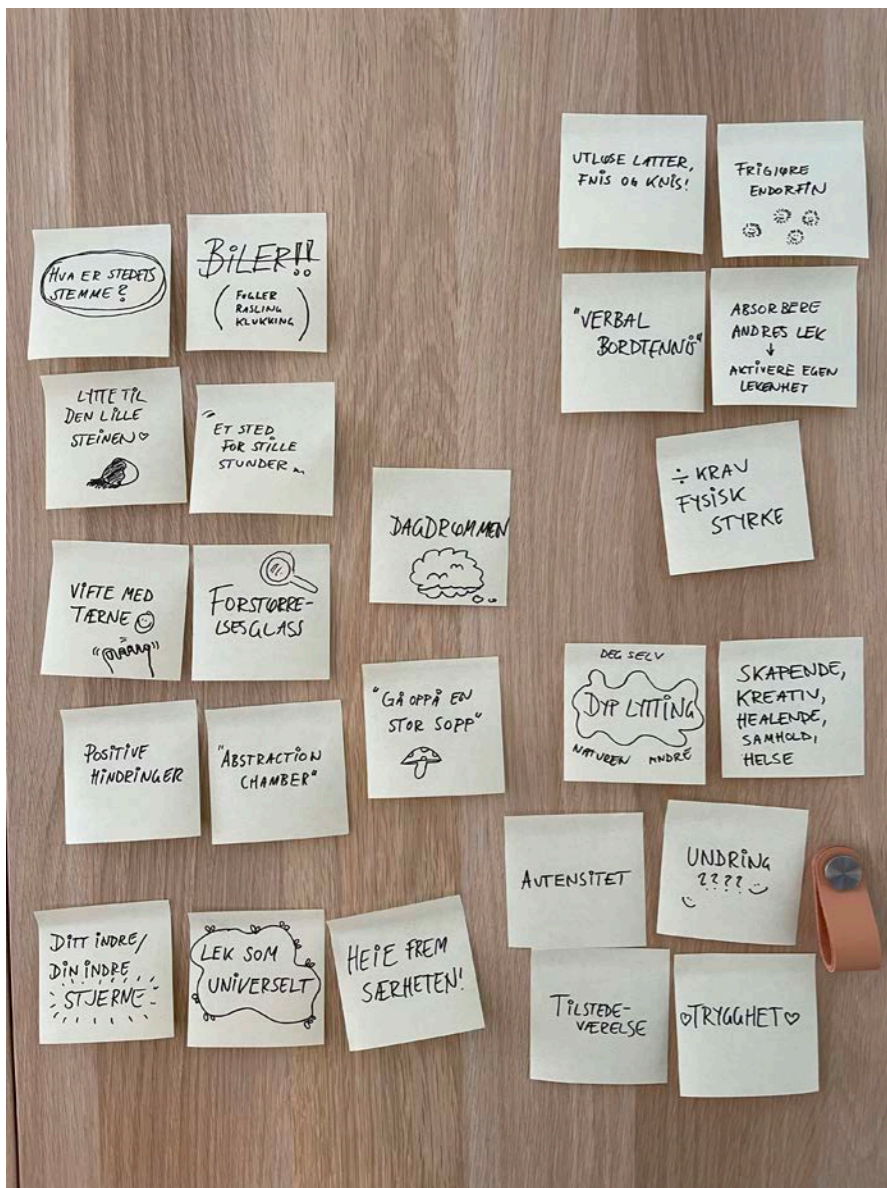 HVA ER STEDETS
STEMME?
BILER!!
(FUGLER
RASLING
KLUKKING)
LYTTE TIL
DEN LILLE
STEINEN ♡
"ET STED
FOR STILLE
STUNDER"
VIFTE MED
TÆRNE
FORSTØRRE-
LSESGLASS
POSITIVE
HINDRINGER
"ABSTRACTION
CHAMBER"
DITT INDRE/
DIN INDRE
STJERNE
LEK SOM
UNIVERSELT
HEIE FREM
SÆRHETEN!
DAGDRØMMEN
"GÅ OPPÅ EN
STOR SOPP"
UTLØSE LATTER,
FNIS OG KNIS!
FRIGJØRE
ENDORFIN
"VERBAL
BORDTENNIS"
ABSORBERE
ANDRES LEK
↓
AKTIVERE EGEN
LEKENHET
÷ KRAV
FYSISK
STYRKE
DEG SELV
DYP LYTTING
NATUREN ANDRE
SKAPENDE,
KREATIV,
HEALENDE,
SAMHOLD,
HELSE
AUTENSITET
UNDRING
????
TILSTEDE-
VÆRELSE
♡TRYGGHET♡